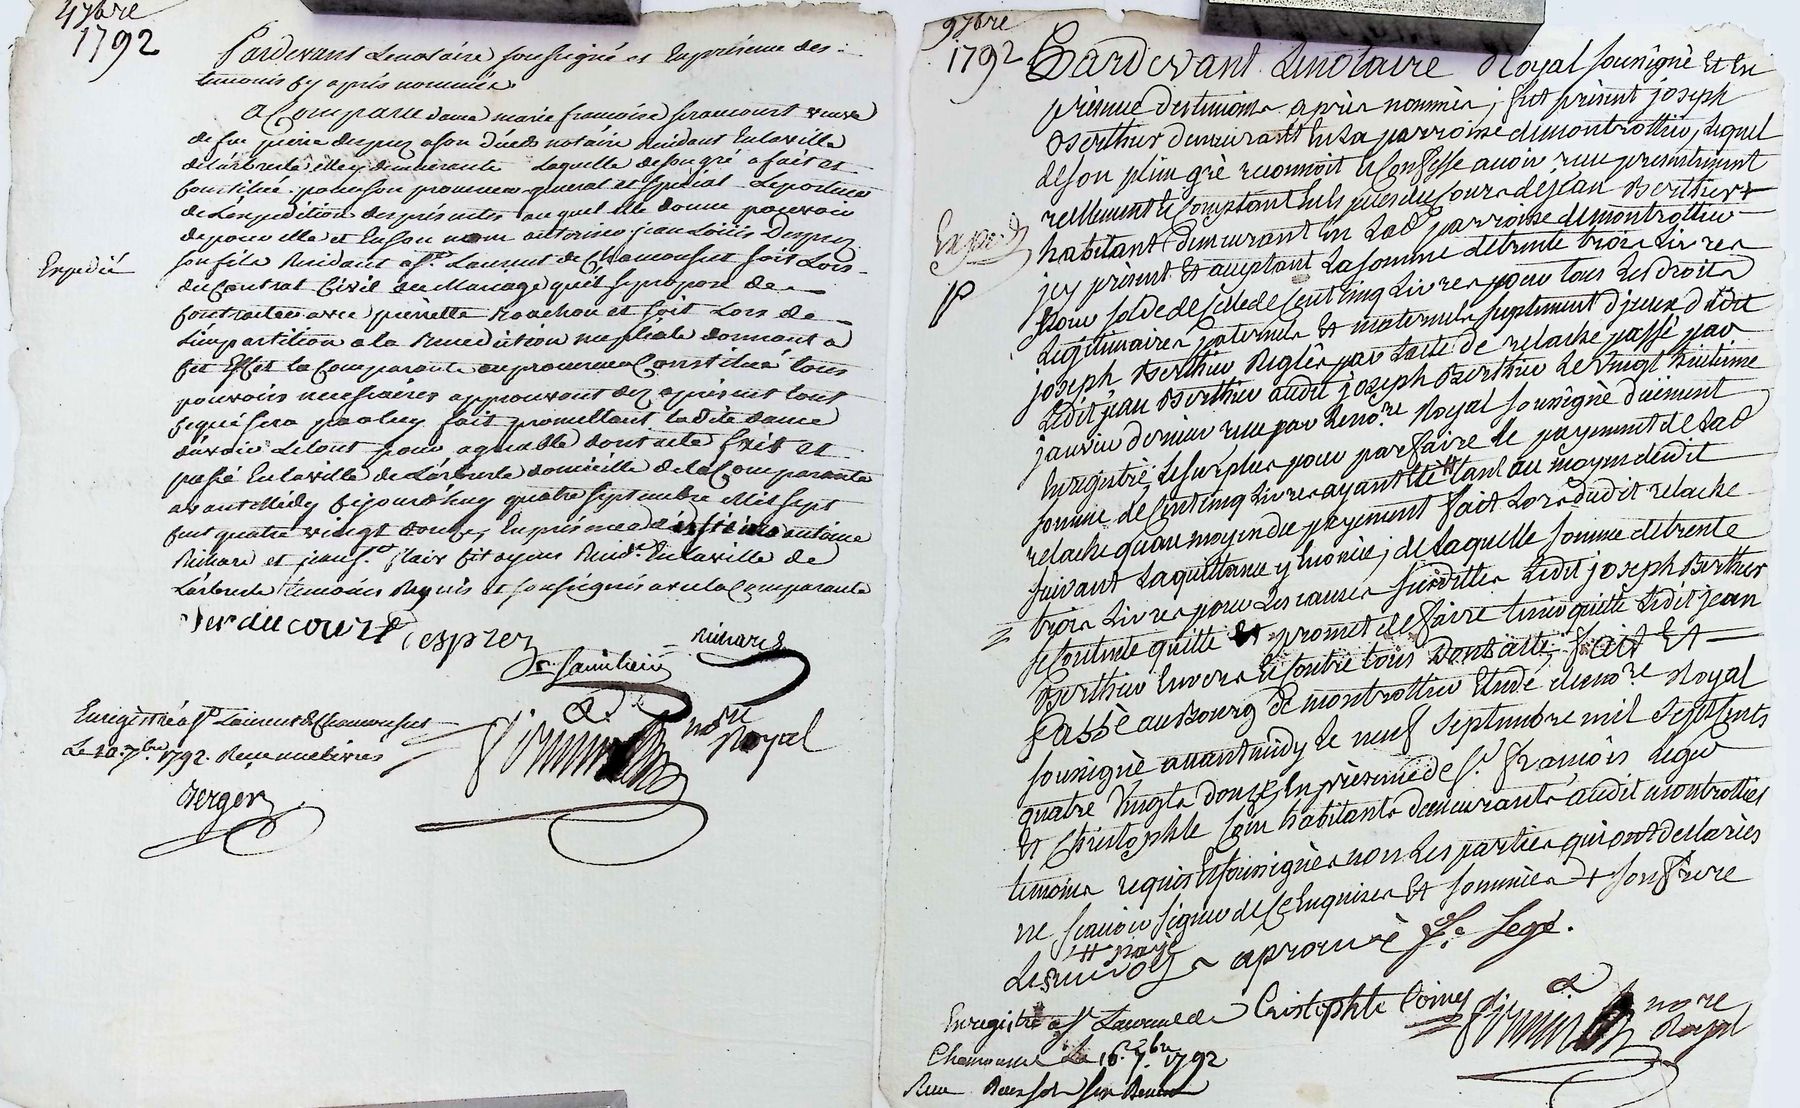 4 7bre
1792
Pardevant Le notaire soussigné et En présence des
temoins cy après nommés
a Comparu dame marie françoise veuve
de feu pierre desprez a son décès notaire Residant En la ville
de Larbresle elle y demeurante Laquelle de son gré a fait et
Constitué pour son procureur general et special Le porteur
de L'expedition des présentes auquel elle donne pouvoir
de pour elle et En son nom autoriser jean Loüis Desprez
son fils Residant a St Laurent de Chamousset soit Lors
du Contrat Civil du Mariage qu'il se propose de
Contracter avec pierrette Rouchon et soit Lors de
L'impartition de la Benediction nuptiale donnant a
Cet Effet la Comparante au procureur Constitué tous
pouvoirs necessaires approuvant dez a présent tout
ce qui sera par luy fait promettant ladite dame
d'avoir Le tout pour agreable dont acte fait et
passé En la ville de Larbresle domicille de la Comparante
avant Midy Cejourd'huy quatre septembre Mil sept
Cent quatre vingt douze, En présence de antoine
Richard et jean Citoyens Residt En la ville de
Larbresle temoins Requis et soussignés avec la Comparante
Expedié
desprez
Richard
nore
Royal
Enregistré a St Laurent de Chamousset
Le 10 7bre 1792. Reçu
Berger
9 7bre
1792
Pardevant Le notaire Royal soussigné Et En
présence des temoins après nommés; fut présent joseph
Berthier demeurant En la parroisse de montrottier, Lequel
de son plein gré reconnoit et Confesse avoir reçu présentement
réellement et Comptant En Espèces du Cours de jean Berthier +
habitant demeurant En lad parroisse de montrottier
jcy présent Et acceptant La somme de trente trois Livres
pour solde de Celle de Cent cinq Livres pour tous Les droits
Légitimaires paternels Et maternels suplement d'jceux dudit
joseph Berthier Reglés par L'acte de relache passé par
Ledit jean Berthier audit joseph Berthier Le vingt huitième
janvier dernier reçu par Le nore Royal soussigné düement
Enregistré; Le surplus pour parfaire le payement de lad
somme de Cent cinq Livres ayant été # tant au moyen dudit
relache qu'au moyen du payement fait Lors dudit relache
suivant La quittance y Enoncée; de Laquelle somme de trente
trois Livres pour Les causes susdittes Ledit joseph Berthier
se Contente quitte Et promet de faire tenir quitte Ledit jean
Berthier Envers Et Contre tous Dont acte, Fait Et
Passé au Bourg de montrottier Etude du nore Royal
soussigné avant midy Le neuf septembre mil sept Cents
quatre vingts douze, En présence de Sr François Legé
Et Christophle habitants demeurants audit montrottier
temoins requis Et soussignés non Les parties qui ont déclarées
ne sçavoir signer de Ce Enquises Et sommées + son frere
# payé
Les renvoys aprouvé Legé.
Exped
Cristophle
nore
Royal
Enregistré a St Laurent de
Chamousset Le 16 7bre 1792